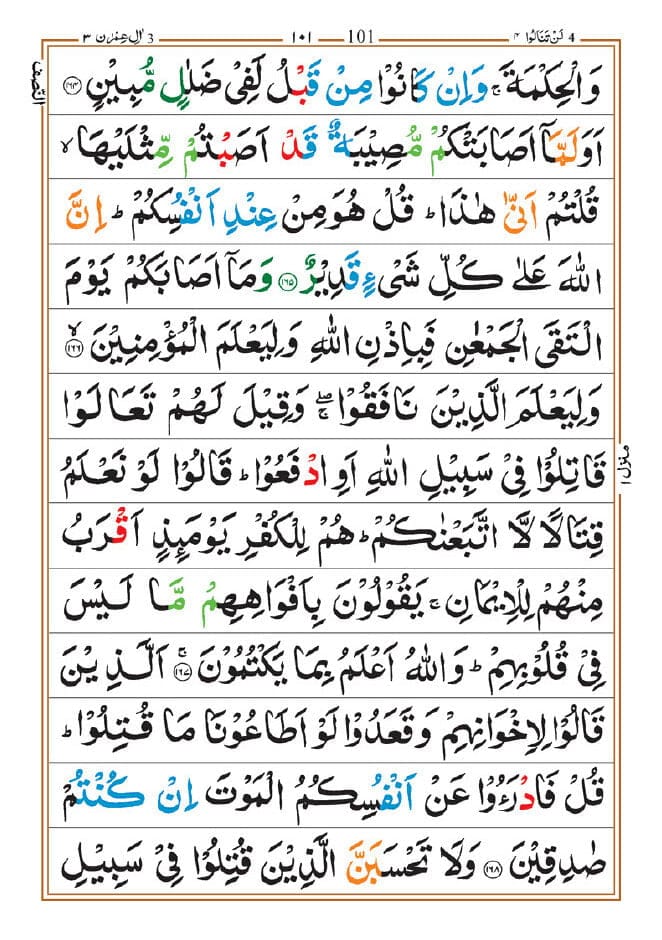 4 لَنْ تَنَالُوا ٤
101 ١٠١
3 اٰلِ عِمْرٰن ٣
النّصف
وَالْحِكْمَةَ ۚ وَاِنْ كَانُوْا مِنْ قَبْلُ لَفِىْ ضَلٰلٍ مُّبِيْنٍ ﴿۱۶۴﴾
اَوَلَمَّاۤ اَصَابَتْكُمْ مُّصِيْبَةٌ قَدْ اَصَبْتُمْ مِّثْلَيْهَا ۙ
قُلْتُمْ اَنّٰى هٰذَا ؕ قُلْ هُوَ مِنْ عِنْدِ اَنْفُسِكُمْ ؕ اِنَّ
اللّٰهَ عَلٰى كُلِّ شَىْءٍ قَدِيْرٌ ﴿۱۶۵﴾ وَمَاۤ اَصَابَكُمْ يَوْمَ
الْتَقَى الْجَمْعٰنِ فَبِاِذْنِ اللّٰهِ وَلِيَعْلَمَ الْمُؤْمِنِيْنَ ﴿۱۶۶﴾ ۙ
وَلِيَعْلَمَ الَّذِيْنَ نَافَقُوْا ۖۚ وَقِيْلَ لَهُمْ تَعَالَوْا
قَاتِلُوْا فِىْ سَبِيْلِ اللّٰهِ اَوِ ادْفَعُوْا ؕ قَالُوْا لَوْ نَعْلَمُ
قِتَالًا لَّا اتَّبَعْنٰكُمْ ؕ هُمْ لِلْكُفْرِ يَوْمَئِذٍ اَقْرَبُ
مِنْهُمْ لِلْاِيْمَانِ ۚ يَقُوْلُوْنَ بِاَفْوَاهِهِمْ مَّا لَيْسَ
فِىْ قُلُوْبِهِمْ ؕ وَاللّٰهُ اَعْلَمُ بِمَا يَكْتُمُوْنَ ﴿۱۶۷﴾ ۚ اَلَّذِيْنَ
قَالُوْا لِاِخْوَانِهِمْ وَقَعَدُوْا لَوْ اَطَاعُوْنَا مَا قُتِلُوْا ؕ
قُلْ فَادْرَءُوْا عَنْ اَنْفُسِكُمُ الْمَوْتَ اِنْ كُنْتُمْ
صٰدِقِيْنَ ﴿۱۶۸﴾ وَلَا تَحْسَبَنَّ الَّذِيْنَ قُتِلُوْا فِىْ سَبِيْلِ
منزل ۱